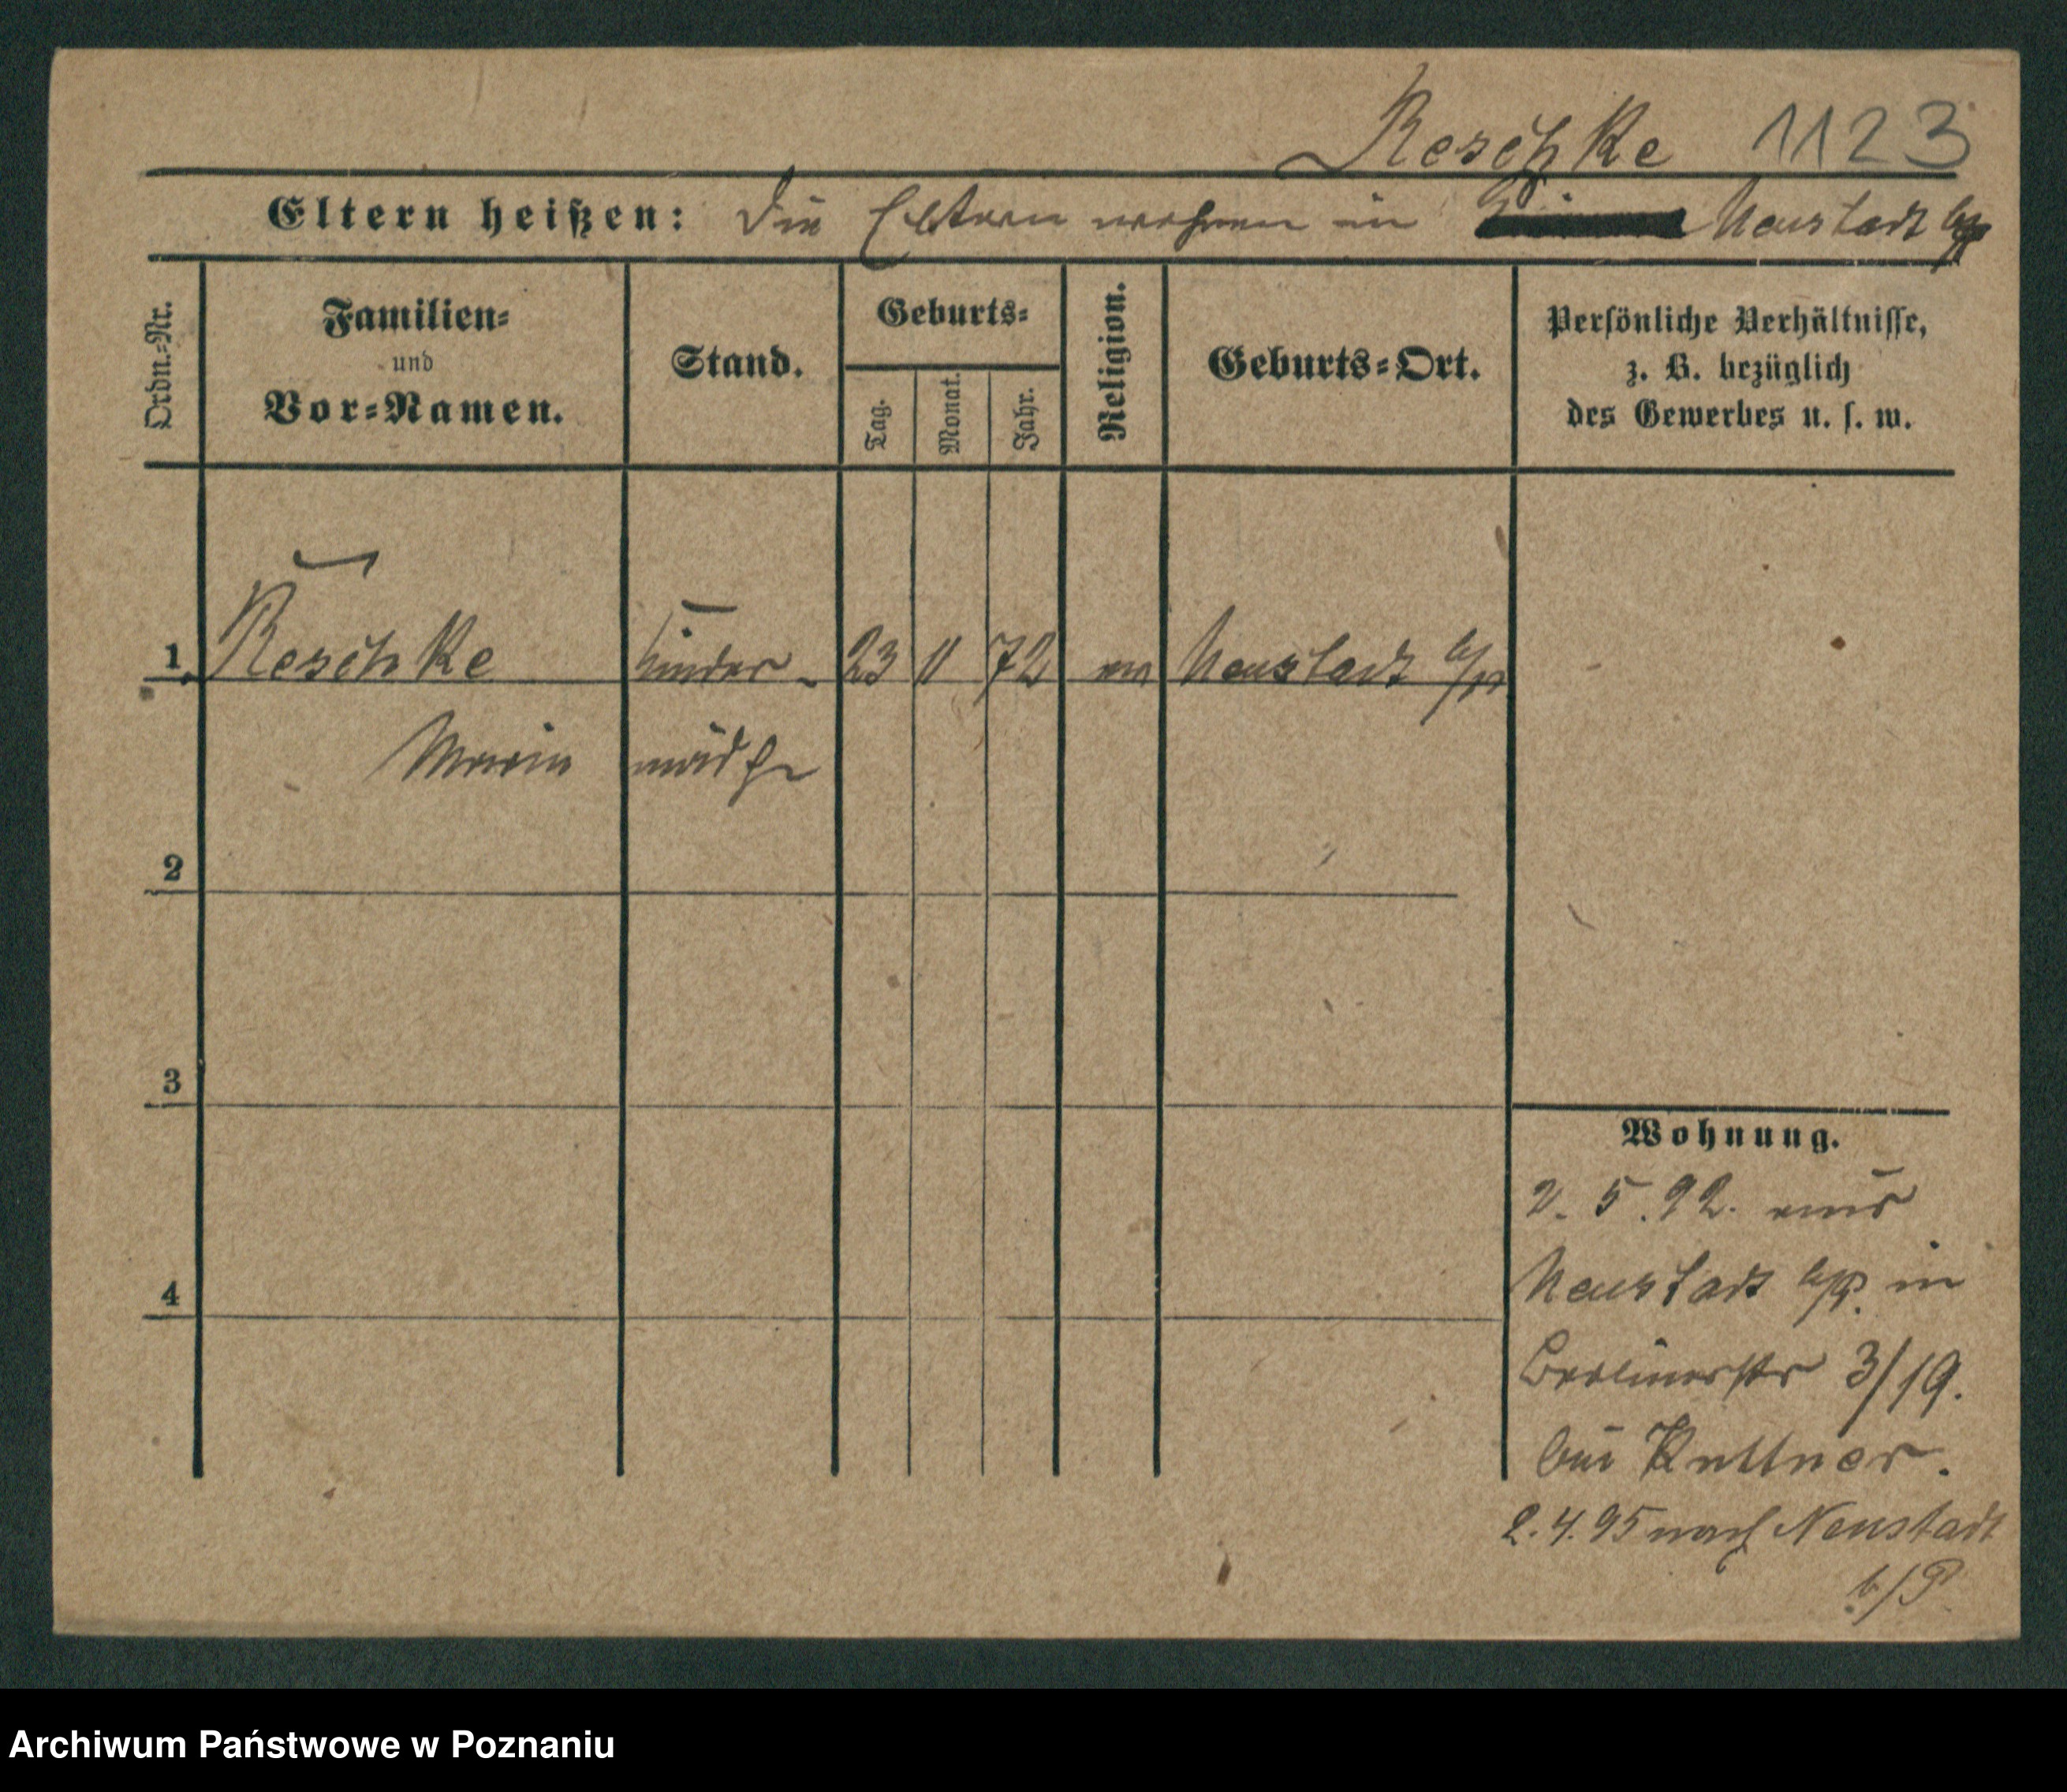 Reschke 1123
Eltern heißen: Die Eltern wohnen in Neustadt b/P
Ordn.-Nr.
Familien-
und
Vor-Namen.
Stand.
Geburts-
Tag.
Monat.
Jahr.
Religion.
Geburts-Ort.
Persönliche Verhältnisse,
z. B. bezüglich
des Gewerbes u. s. w.
1. Reschke Kinder- 23 11 72 ev Neustadt b/P
Maria mädch
2
3
4
Wohnung.
2. 5. 92. aus
Neustadt b/P. in
Berlinerstr 3/19.
bei Kuttner.
2. 4. 95 nach Neustadt
b/P
Archiwum Państwowe w Poznaniu